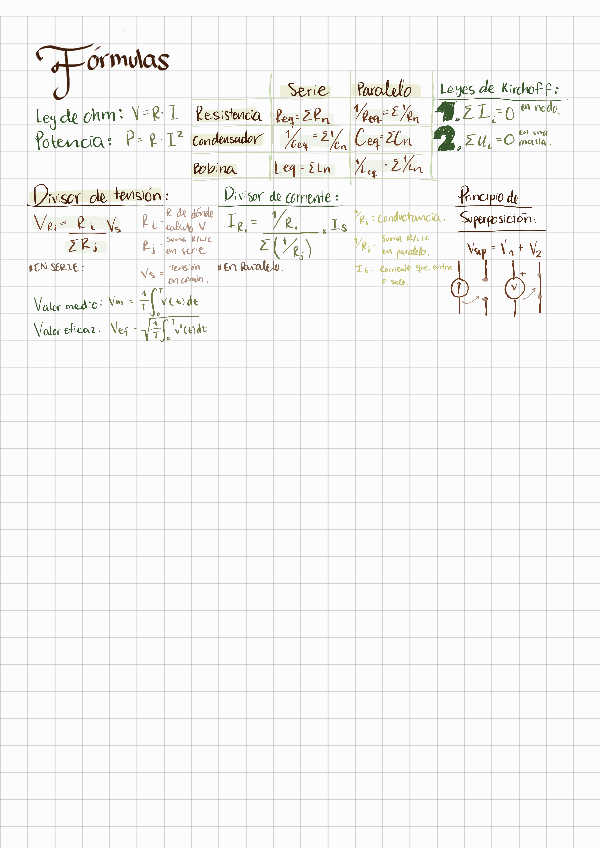 Fórmulas
Serie Paralelo
Leyes de Kirchoff:
Ley de ohm: V=R·I
Potencia: P=R·I²
Resistencia Req=ΣRn 1/Req=Σ1/Rn
Condensador 1/Ceq=Σ1/Cn Ceq=ΣCn
Bobina Leq=ΣLn 1/Leq=Σ1/Ln
1. ΣIi=0 en nodo.
2. Σui=0 en una malla.
Divisor de tensión:
VRi = Ri / ΣRj Vs
Ri = R de dónde
calculo V
Rj = suma R/L/C
en serie
Vs = tensión
en común.
*EN SERIE:
Divisor de corriente:
IRi = 1/Ri / Σ(1/Rj) × Is
1/Ri: conductancia.
1/Rj: suma R/L/C
en paralelo.
Is: corriente que entra
o sale.
*En Paralelo.
Principio de
Superposición:
Vsup = V1 + V2
V
+
Valor medio: Vm = 1/T ∫₀ᵀ v(t)dt
Valor eficaz: Vef = √(1/T ∫₀ᵀ v²(t)dt)